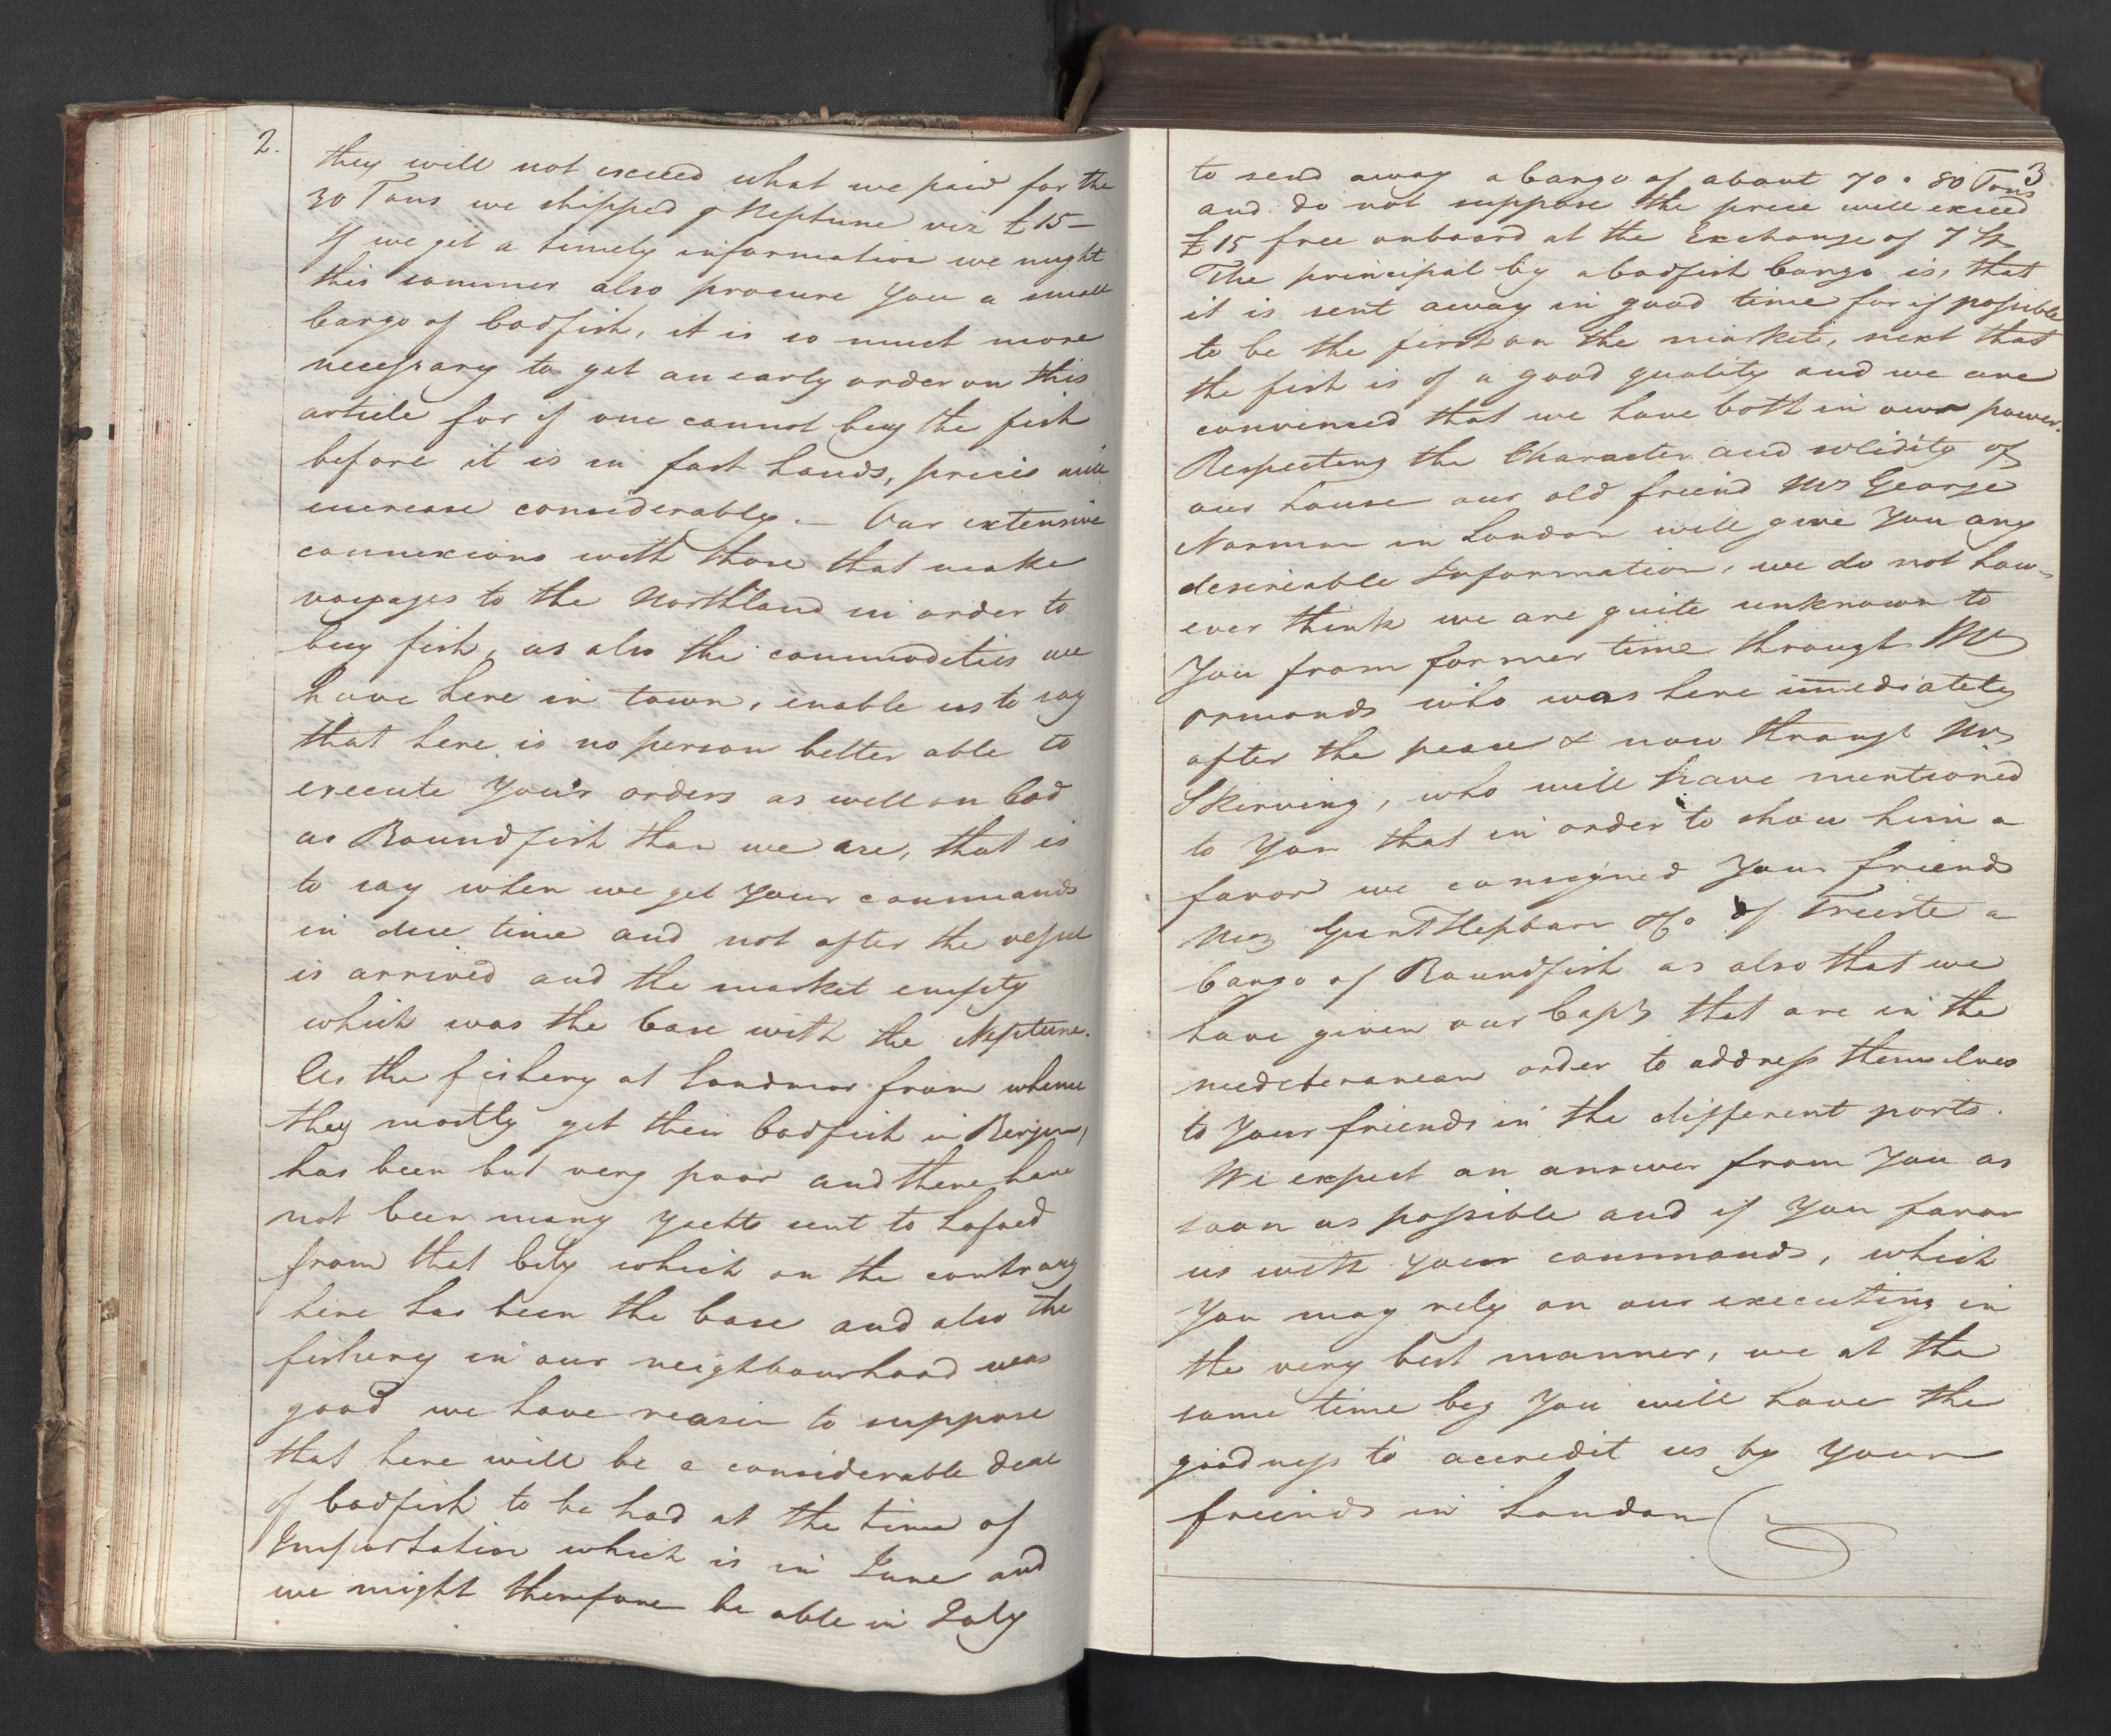 2.
they will not exceed what we paid for the
30 Tons we shipped p Neptune viz £15 –
If we get a timely information we might
this sommer also procure You a small
Cargo of Codfish, it is so much more
necessary to get an early order on this
article for if one cannot buy the fish
before it is in fast hands, prices will
increase considerably. – Our extensive
connexions with those that make
voyages to the Northland in order to
buy fish, as also the commodities we
have here in town, enable us to say
that here is no person better able to
execute Your orders as well on Cod
as Roundfish than we are, that is
to say when we get Your commands
in due time and not after the vessel
is arrived and the market empty
which was the Case with the Neptune.
As the fishery at Sondmor from whence
they mostly get their Codfish in Bergen,
has been but very poor and there have
not been many Yachts sent to Lofoed
from that City which on the contrary
here has been the Case and also the
fishery in our neighbourhood was
good we have reason to suppose
that here will be a considerable deal
of Codfish to be had at the time of
Importation which is in June and
we might therefore be able in July
3
to send away a Cargo of about 70 a 80 Tons
and do not suppose the price will exceed
£15 free onboard at the Exchange of 7
The principal by a Codfish Cargo is, that
it is sent away in good time for if possible
to be the first on the market, next that
the fish is of a good quality and we are
convinced that we have both in our power.
Respecting the Character and solidity of
our house our old friend Mr George
Norman in London will give You any
desireable Information, we do not how-
ever think we are quite unknown to
You from former time through Mr
Ormonds who was here imediately
after the peace & now through Mr
Skirving, who will have mentioned
to You that in order to show him a
favor we consigned Your friends
Grant Hepburn & Co of Trieste a
Cargo of Roundfish as also that we
have given our Capts that are in the
mediteranean order to address themselves
to Your friends in the different ports.
We expect an answer from You as
soon as possible and if You favor
us with Your commands, which
You may rely on our executing in
the very best manner, we at the
same time beg You will have the
goodness to accredit us by Your
friends in London